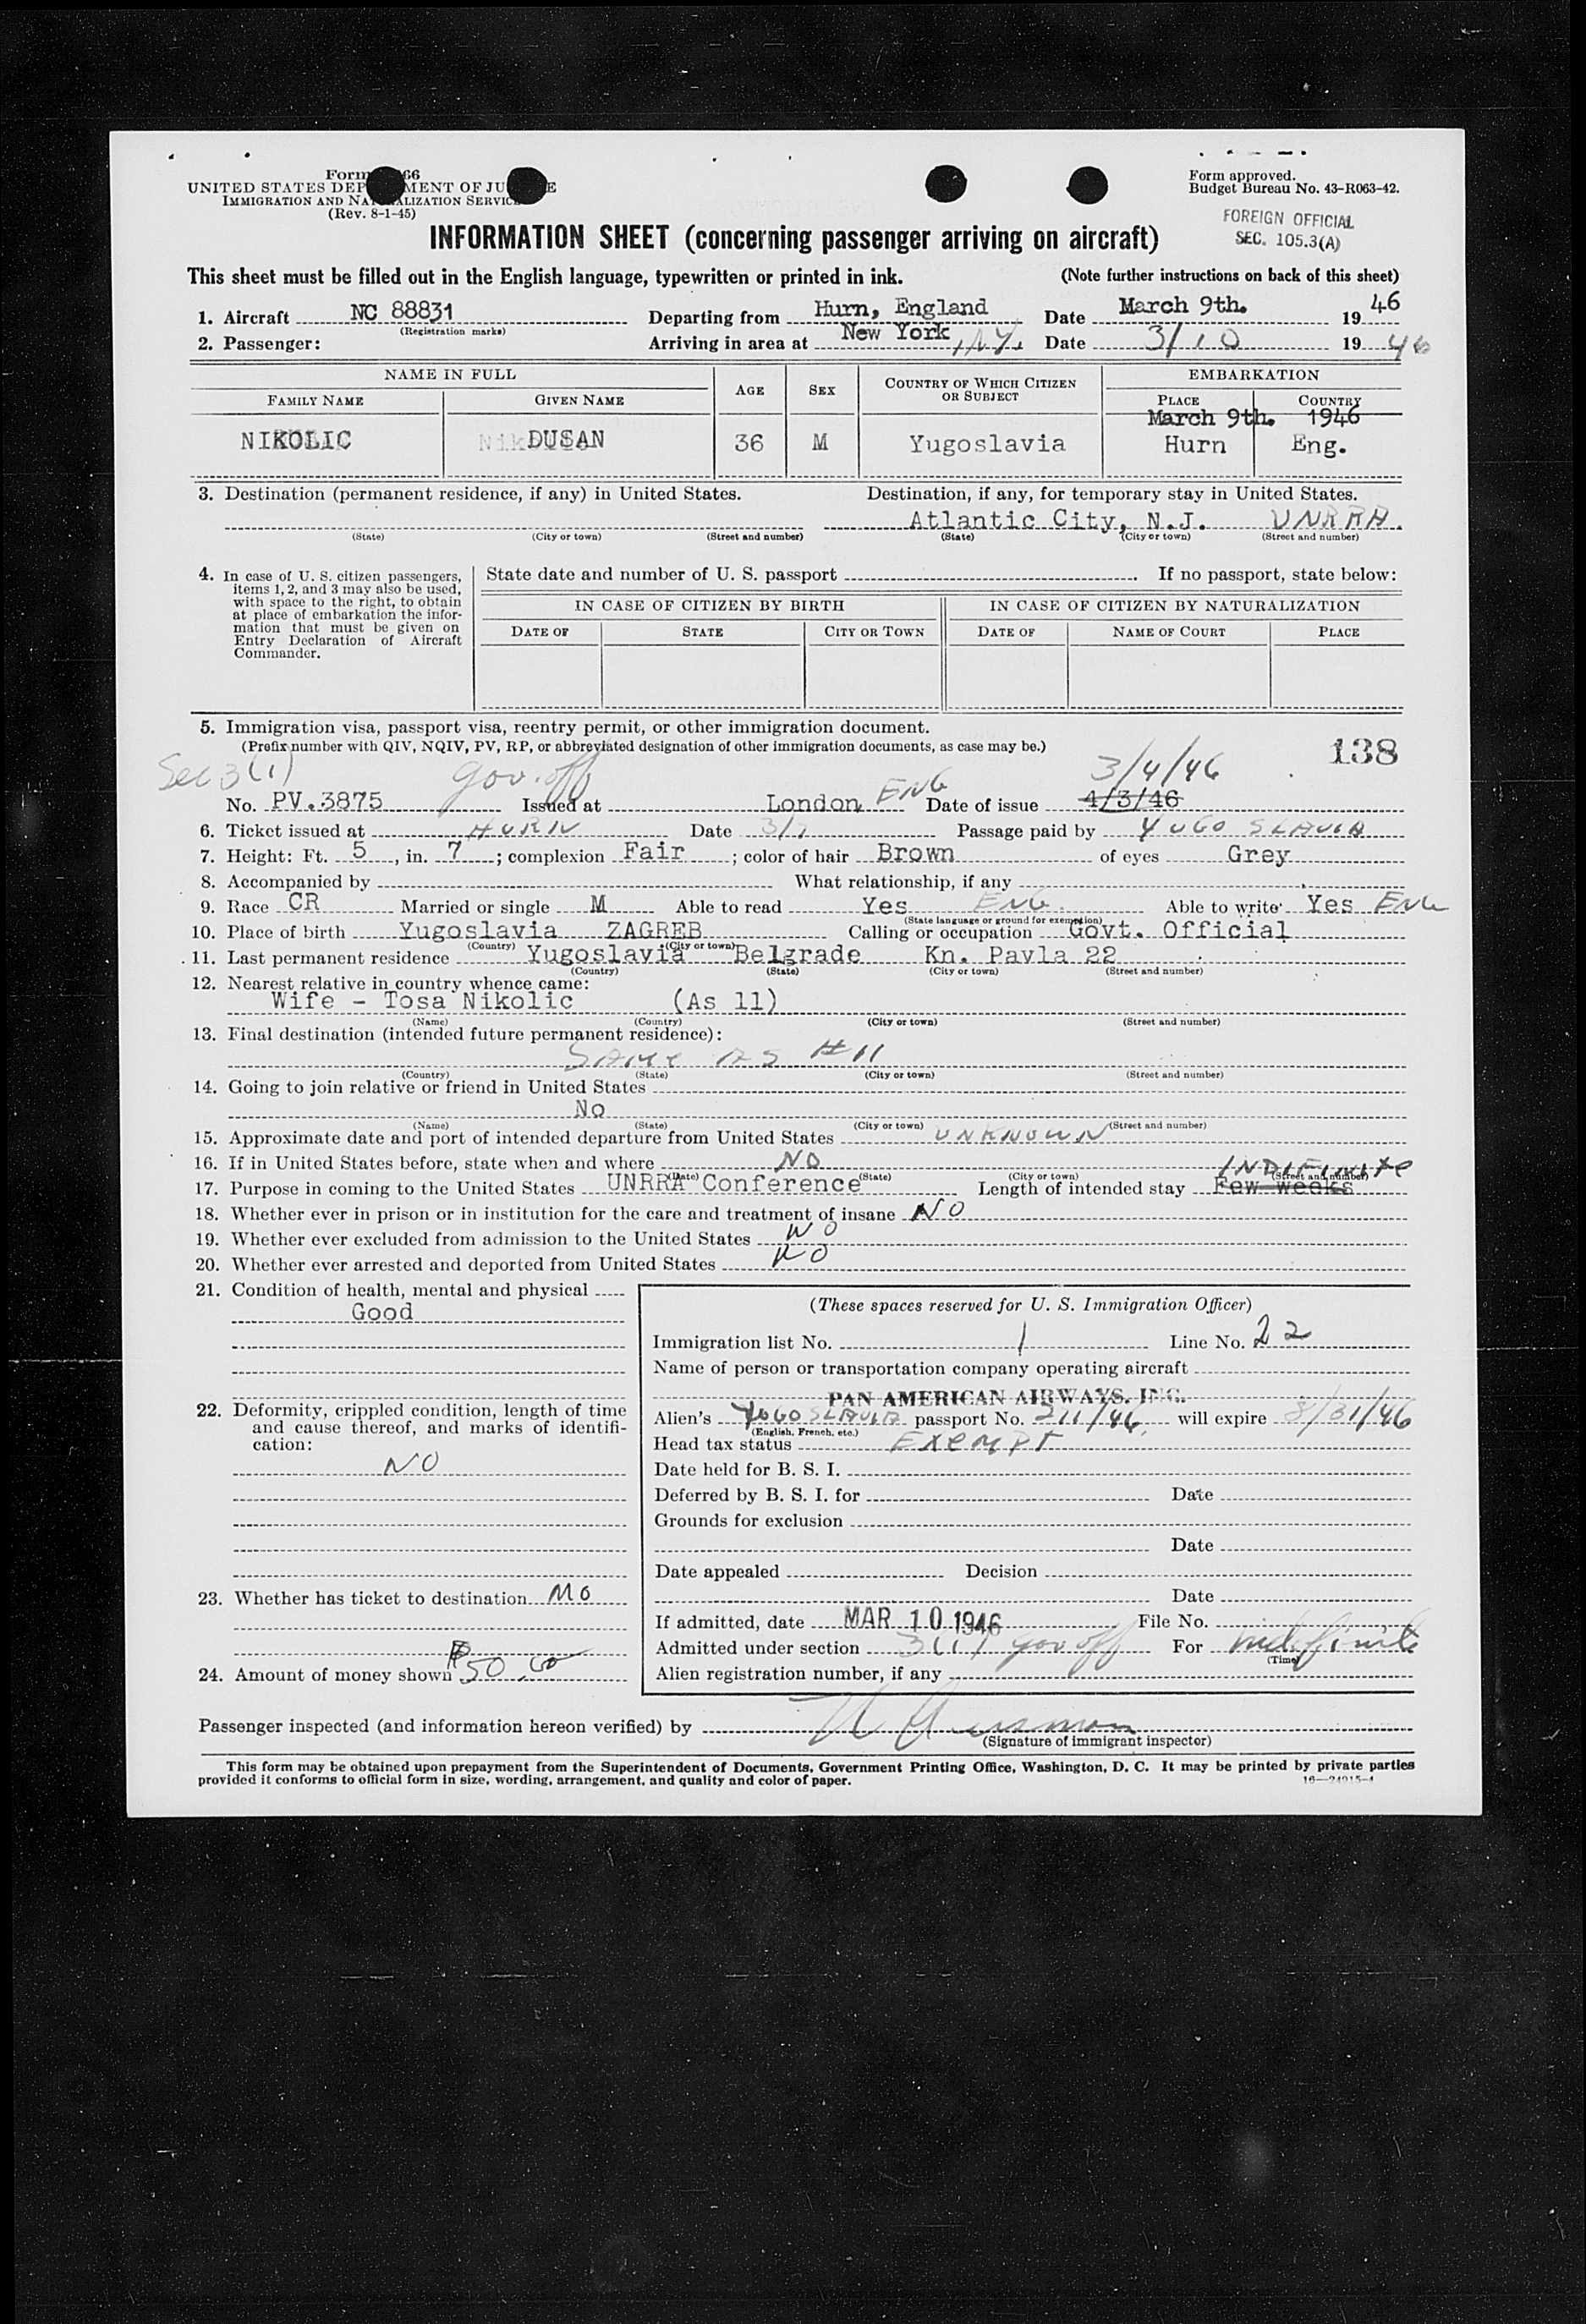 Form 66
UNITED STATES DEP MENT OF JU E
IMMIGRATION AND NA ALIZATION SERVIC
(Rev. 8-1-45)
Form approved.
Budget Bureau No. 43-R063-42.
FOREIGN OFFICIAL
SEC. 105.3(A)
INFORMATION SHEET (concerning passenger arriving on aircraft)
This sheet must be filled out in the English language, typewritten or printed in ink. (Note further instructions on back of this sheet)
1. Aircraft NC 88831 Departing from Hurn, England Date March 9th. 1946
(Registration marks)
2. Passenger: Arriving in area at New York, N.Y. Date 3/10 1946
NAME IN FULL AGE SEX COUNTRY OF WHICH CITIZEN OR SUBJECT EMBARKATION
FAMILY NAME GIVEN NAME PLACE COUNTRY
March 9th. 1946
NIKOLIC DUSAN 36 M Yugoslavia Hurn Eng.
3. Destination (permanent residence, if any) in United States. Destination, if any, for temporary stay in United States.
Atlantic City, N.J. UNRRA.
(State) (City or town) (Street and number) (State) (City or town) (Street and number)
4. In case of U. S. citizen passengers, items 1, 2, and 3 may also be used, with space to the right, to obtain at place of embarkation the information that must be given on Entry Declaration of Aircraft Commander.
State date and number of U. S. passport . If no passport, state below:
IN CASE OF CITIZEN BY BIRTH IN CASE OF CITIZEN BY NATURALIZATION
DATE OF STATE CITY OR TOWN DATE OF NAME OF COURT PLACE
5. Immigration visa, passport visa, reentry permit, or other immigration document.
(Prefix number with QIV, NQIV, PV, RP, or abbreviated designation of other immigration documents, as case may be.) 138
Sec 3(1) gov. off 3/4/46
No. PV.3875 Issued at London ENG Date of issue 4/3/46
6. Ticket issued at HURN Date 3/7 Passage paid by YUGO SLAVIA
7. Height: Ft. 5, in. 7; complexion Fair; color of hair Brown of eyes Grey
8. Accompanied by What relationship, if any
9. Race CR Married or single M Able to read Yes ENG. Able to write Yes ENG
(State language or ground for exemption)
10. Place of birth Yugoslavia ZAGREB Calling or occupation Govt. Official
(Country) (City or town)
11. Last permanent residence Yugoslavia Belgrade Kn. Pavla 22
(Country) (State) (City or town) (Street and number)
12. Nearest relative in country whence came:
Wife - Tosa Nikolic (As 11)
(Name) (Country) (City or town) (Street and number)
13. Final destination (intended future permanent residence):
SAME AS #11
(Country) (State) (City or town) (Street and number)
14. Going to join relative or friend in United States
No
(Name) (State) (City or town) (Street and number)
15. Approximate date and port of intended departure from United States UNKNOWN
16. If in United States before, state when and where NO
(Date) (State) (City or town) (Street and number)
INDIFINITE
17. Purpose in coming to the United States UNRRA Conference Length of intended stay Few weeks
18. Whether ever in prison or in institution for the care and treatment of insane NO
19. Whether ever excluded from admission to the United States NO
20. Whether ever arrested and deported from United States NO
21. Condition of health, mental and physical
Good
22. Deformity, crippled condition, length of time and cause thereof, and marks of identification:
NO
23. Whether has ticket to destination NO
24. Amount of money shown $50.00
(These spaces reserved for U. S. Immigration Officer)
Immigration list No. 1 Line No. 22
Name of person or transportation company operating aircraft
PAN AMERICAN AIRWAYS. INC.
Alien's YUGO SLAVIA passport No. 211/46 will expire 8/31/46
(English, French, etc.)
Head tax status EXEMPT
Date held for B. S. I.
Deferred by B. S. I. for Date
Grounds for exclusion
Date
Date appealed Decision
Date
If admitted, date MAR 10 1946 File No.
Admitted under section 3(1) gov off For indefinite
(Time)
Alien registration number, if any
Passenger inspected (and information hereon verified) by
(Signature of immigrant inspector)
This form may be obtained upon prepayment from the Superintendent of Documents, Government Printing Office, Washington, D. C. It may be printed by private parties
provided it conforms to official form in size, wording, arrangement, and quality and color of paper. 16—24915-1